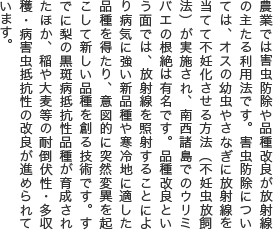 農業では害虫防除や品種改良が放射線
の主たる利用法です。害虫防除につい
ては、オスの幼虫やさなぎに放射線を
当てて不妊化させる方法（不妊虫放飼
法）が実施され、南西諸島でのウリミ
バエの根絶は有名です。品種改良とい
う面では、放射線を照射することによ
り病気に強い新品種や寒冷地に適した
品種を得たり、意図的に突然変異を起
こして新しい品種を創る技術です。す
でに梨の黒斑病抵抗性品種が育成され
たほか、稲や大麦等の耐倒伏性・多収
穫・病害虫抵抗性の改良が進められて
います。